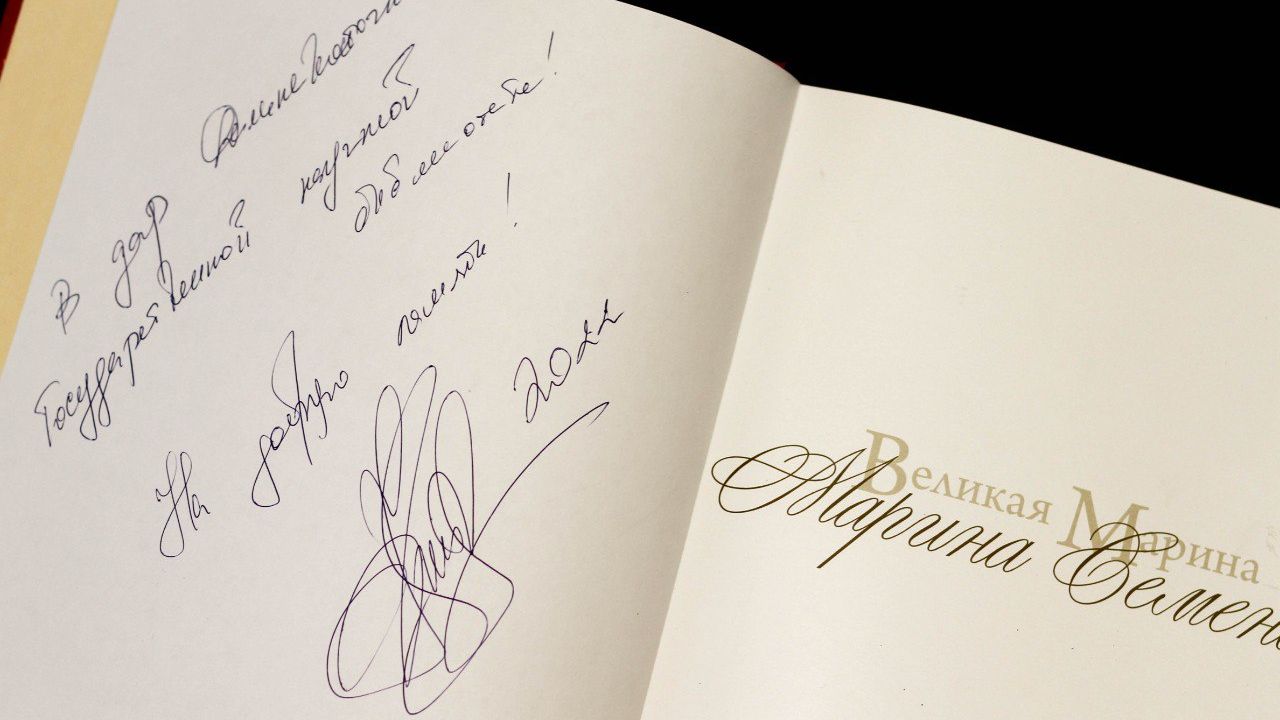 В дар Дальневосточн
Государственной научной
библиотеке!
На добрую память!
2022
Великая Марина
Марина Семен